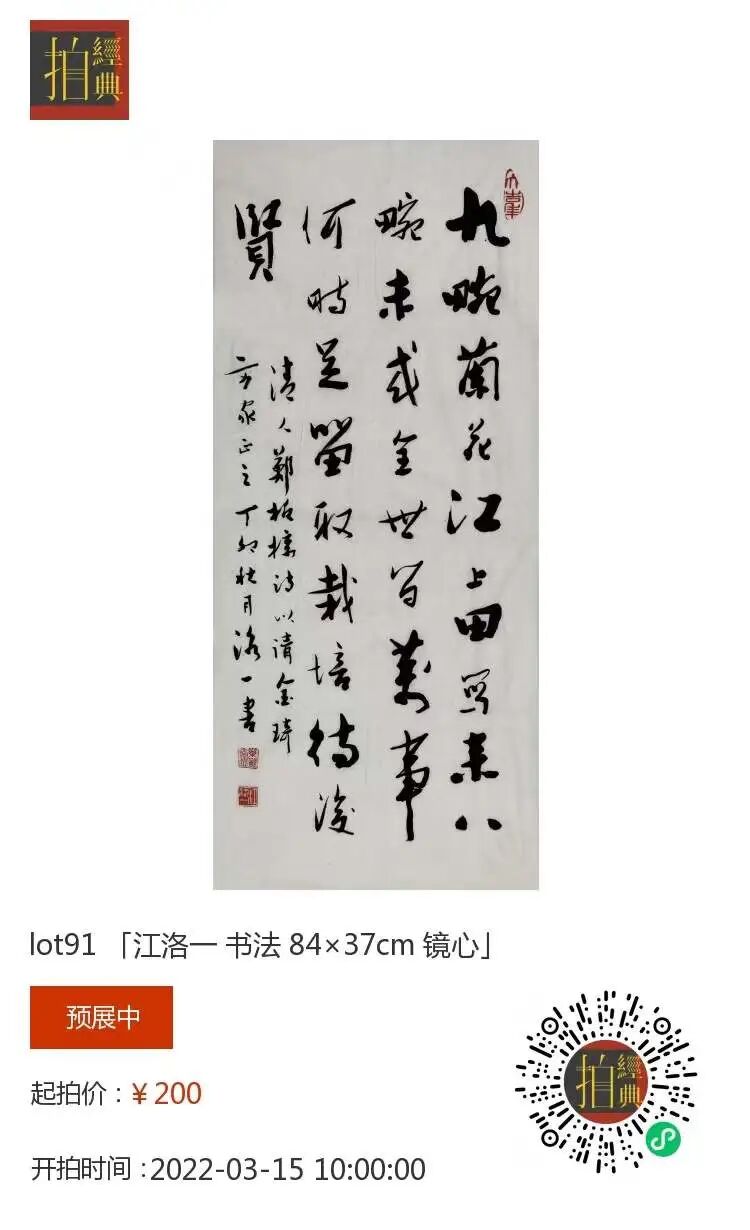 拍
經典
九畹蘭花江上田寫来八
畹未成全世间萬事
何時足留取栽培待後
賢
清人鄭板橋詩以請金琦
方家正之丁卯秋月洛一書
lot91 「江洛一 书法 84×37cm 镜心」
预展中
起拍价：¥ 200
开拍时间：2022-03-15 10:00:00
拍
經典